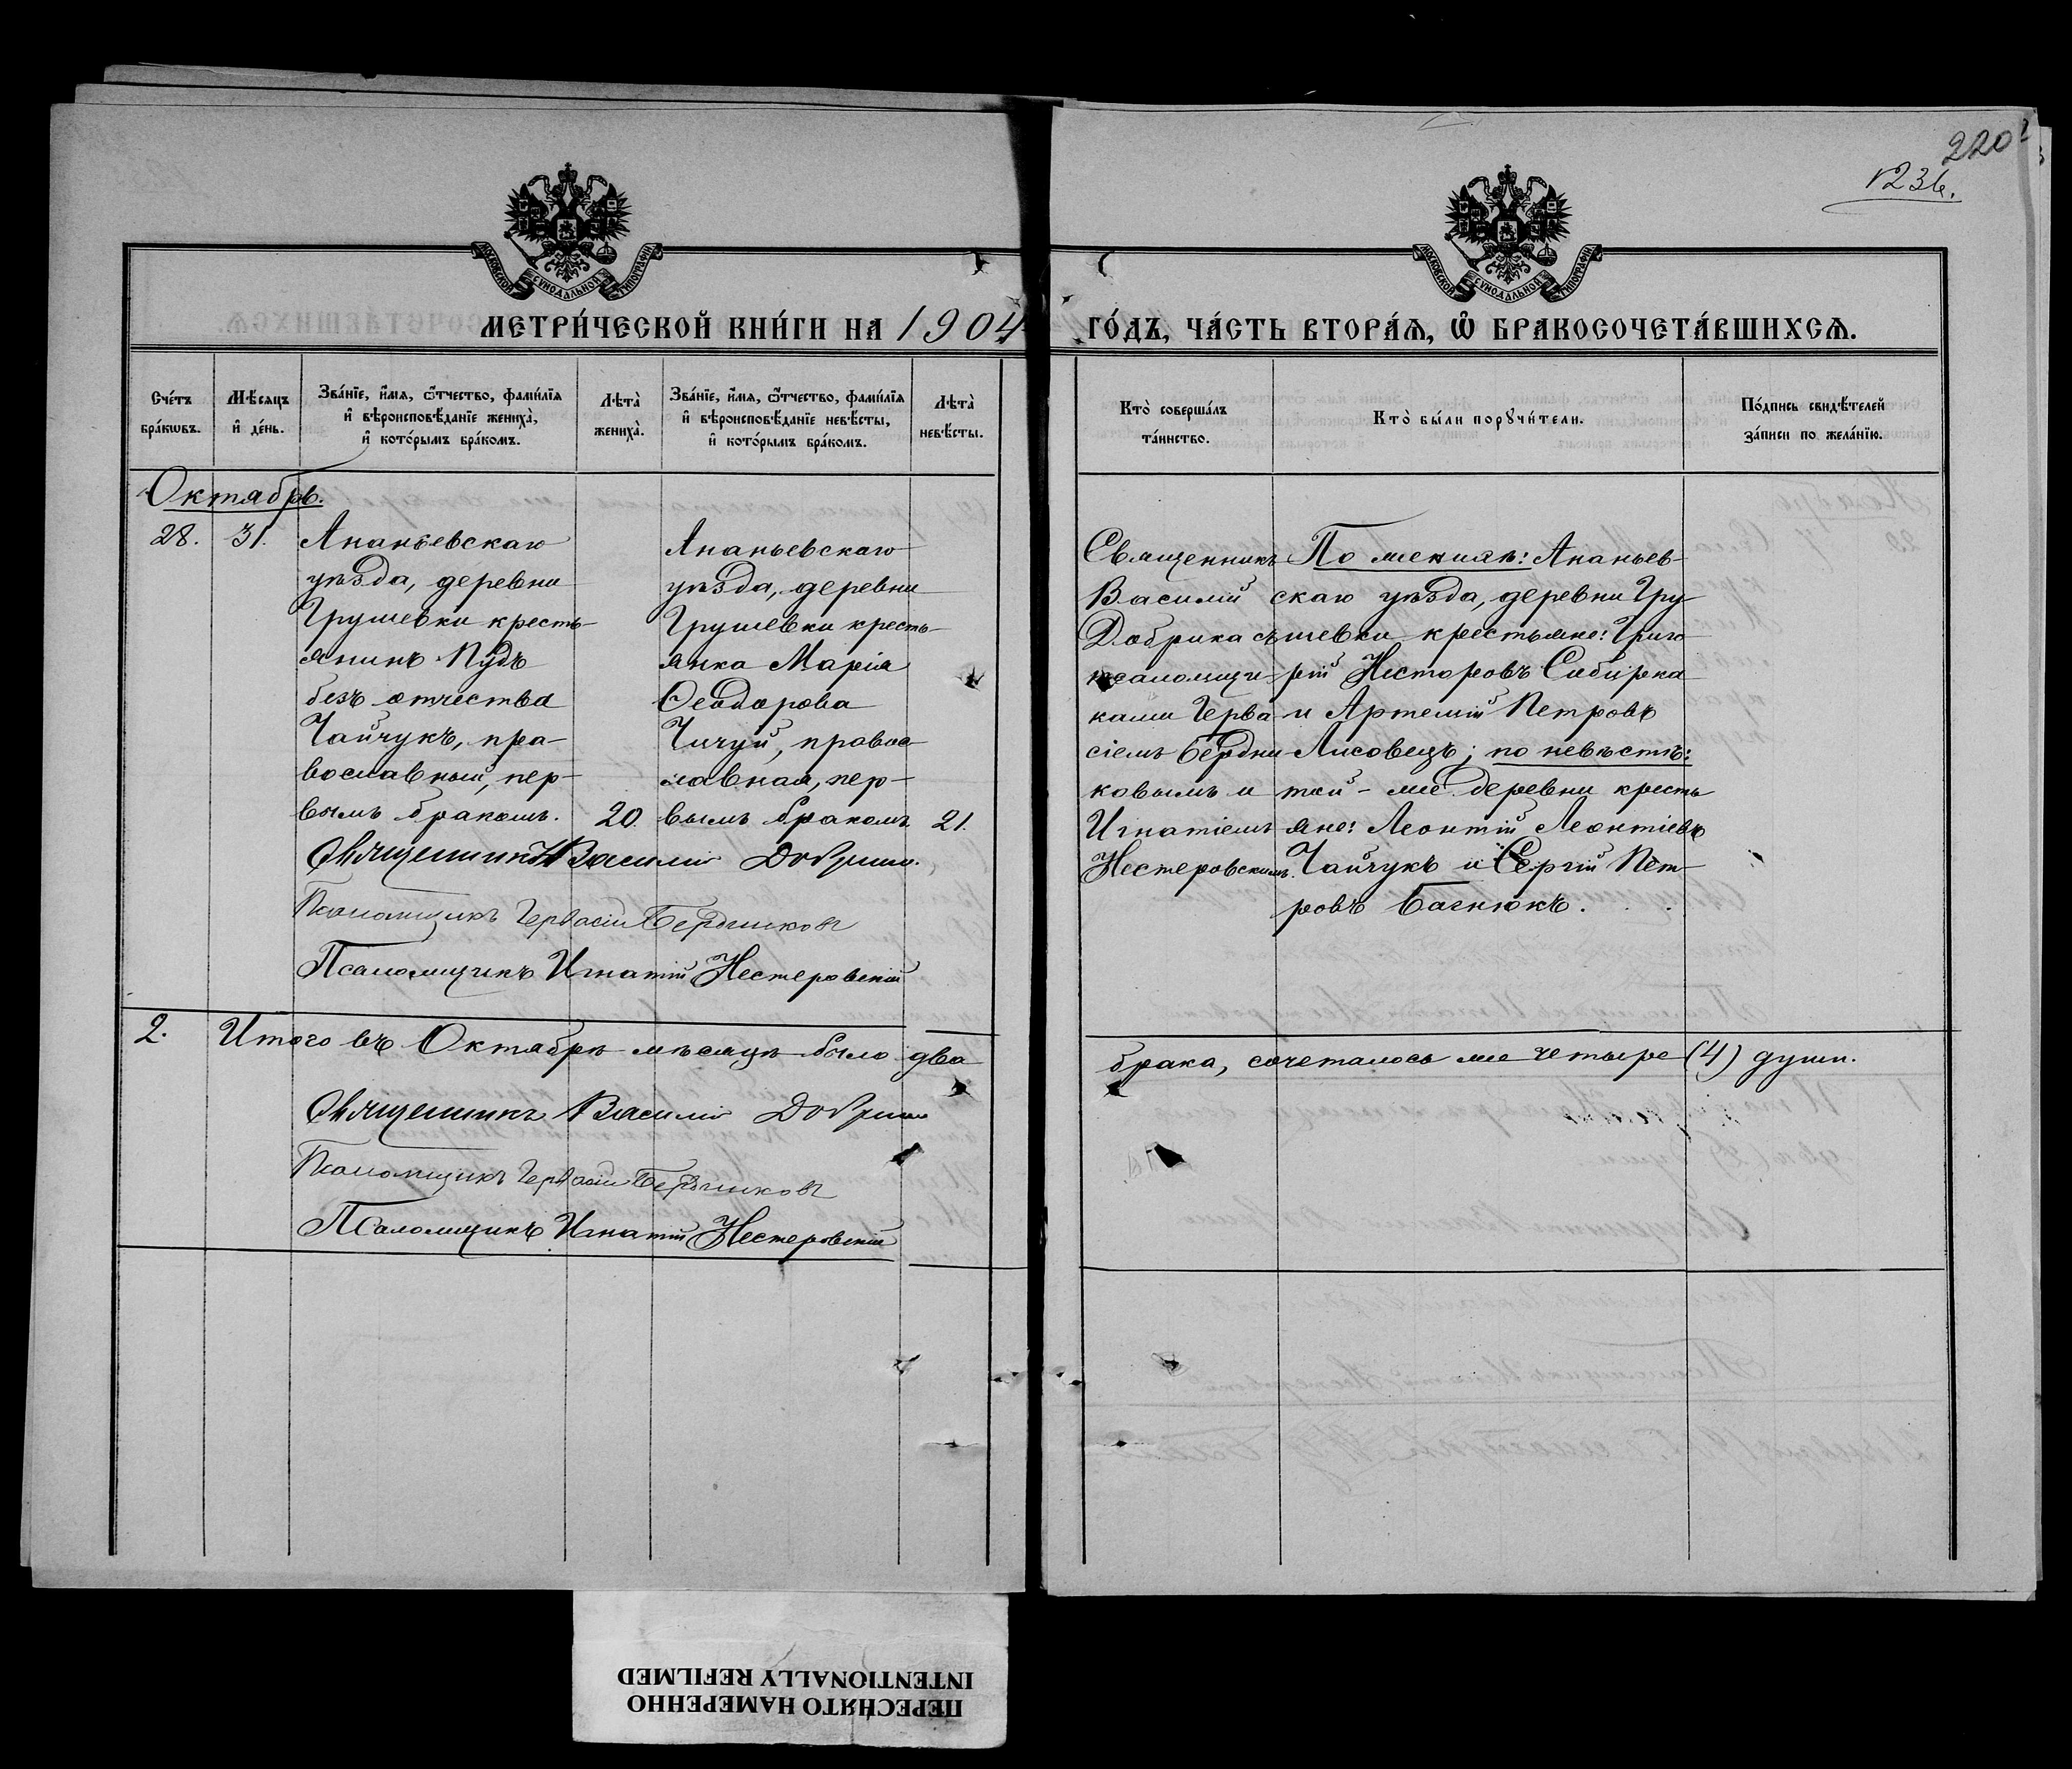 220
236.
МОСКОВСКОЙ СѴНОДАЛЬНОЙ ТИПОГРАФІИ
МОСКОВСКОЙ СѴНОДАЛЬНОЙ ТИПОГРАФІИ
МЕТРИ́ЧЕСКОЙ КНИ́ГИ НА 1904
ГО́ДЪ, ЧА́СТЬ ВТОРА́Ѧ, Ѡ҆ БРАКОСОЧЕТА́ВШИХСѦ.
Сче́тъ
бра́кѡвъ.
Мѣ́сѧцъ
и҆ де́нь.
Зва́нїе, и҆́мѧ, ѻ҆́тчество, фами́лїѧ
и҆ вѣроисповѣ́данїе жениха̀,
и҆ кото́рымъ бра́комъ.
Лѣта̀
жениха̀.
Зва́нїе, и҆́мѧ, ѻ҆́тчество, фами́лїѧ
и҆ вѣроисповѣ́данїе невѣ́сты,
и҆ кото́рымъ бра́комъ.
Лѣта̀
невѣ́сты.
Кто̀ соверша́лъ
та́инство.
Кто̀ бы́ли порꙋчи́тели.
По́дпись свидѣ́телей
за́писи по жела́нїю.
Октябрь.
28.
31.
Ананьевскаго
уѣзда, деревни
Грушевки кресть-
янинъ Пудъ
безъ отчества
Чайчукъ, пра-
вославный, пер-
вымъ бракомъ.
20.
Ананьевскаго
уѣзда, деревни
Грушевки кресть-
янка Марія
Ѳеодорова
Чигуй, правос-
лавная, пер-
вымъ бракомъ.
21.
Священникъ
Василій
Добрика съ
псаломщи-
ками Герва-
сіемъ Бердни-
ковымъ и
Игнатіемъ
Нестеровскимъ.
По женихѣ: Ананьев-
скаго уѣзда, деревни Гру-
шевки крестьяне: Григо-
рій Несторовъ Сибирка
и Артемій Петровъ
Лисовецъ; по невѣстѣ:
той-же деревни кресть-
яне: Леонтій Леонтіевъ
Чайчукъ и Сергій Пет-
ровъ Багнюкъ.
Священникъ Василій Добрика.
Псаломщикъ Гервасій Бердниковъ
Псаломщикъ Игнатій Нестеровскій
2. Итого въ Октябрѣ мѣсяцѣ было два
брака, сочеталось же четыре (4) души.
Священникъ Василій Добрика
Псаломщикъ Гервасій Бердниковъ
Псаломщикъ Игнатій Нестеровскій
ПЕРЕСНЯТО НАМЕРЕННО
INTENTIONALLY REFILMED